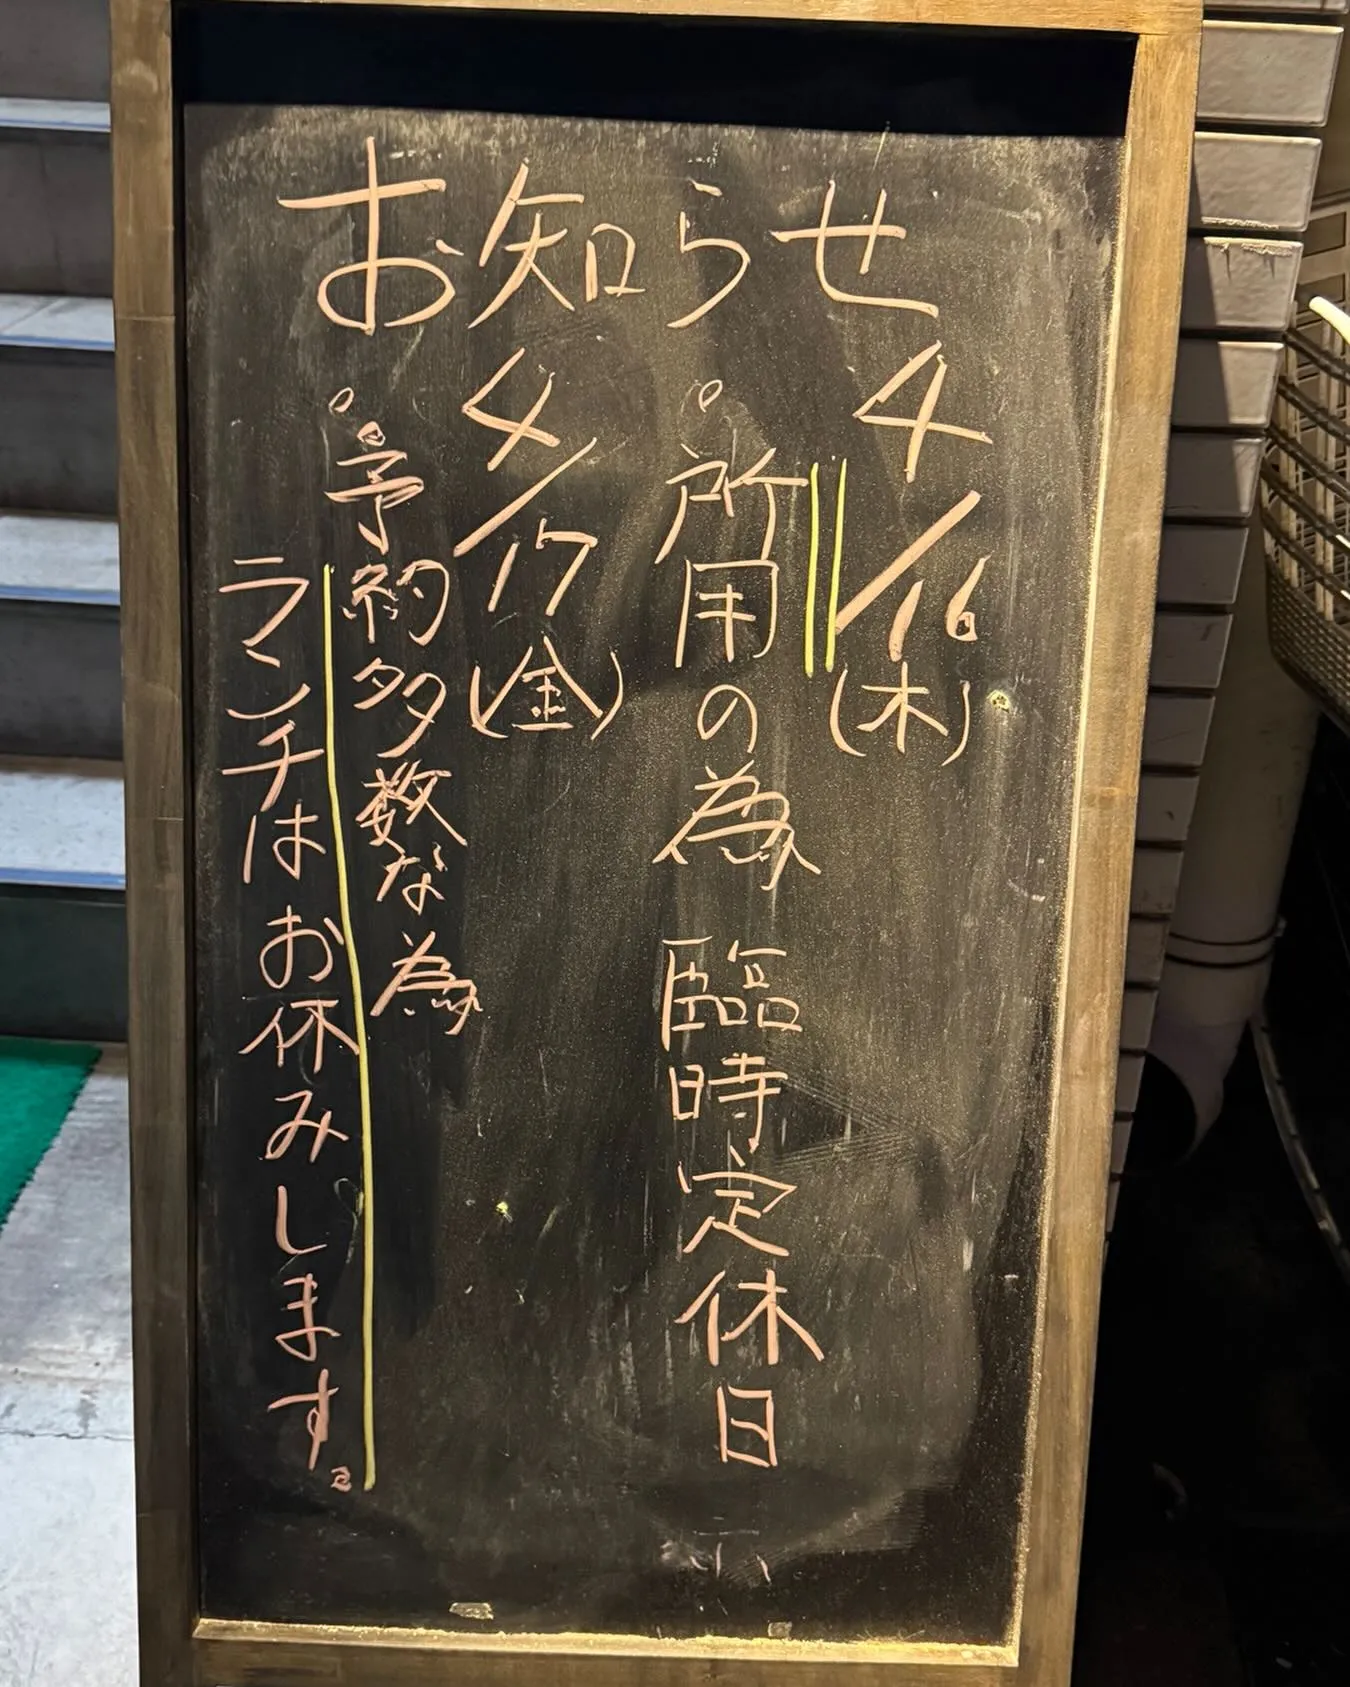 お知らせ
4/16(木)
。所用の為 臨時定休日
4/17(金)
。予約多数な為
ランチはお休みします。